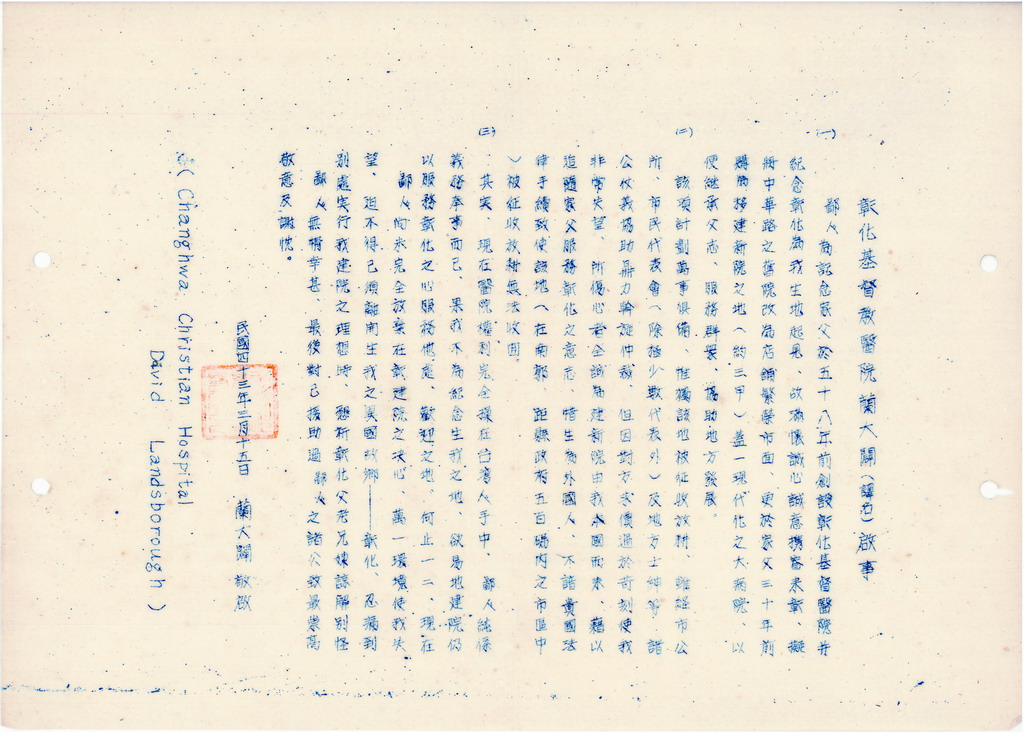 彰化基督教醫院蘭大闢(譯名)啟事
(一)
鄙人為記念家父於五十八年前創設彰化基督醫院并
紀念彰化為我生地起見、故滿懷誠心誠意携眷來彰、擬
將中華路之舊院改為店鋪繁榮市面、更於家父三十年前
購而移建新院之地(約三甲)蓋一現代化之大病院、以
便繼承父志、服務群眾、協助地方發展。
(二)
該項計劃萬事俱備、惟獨該地被征收放耕、雖經市公
所、市民代表會(除極少數代表外)及地方士紳等、諸
公仗義協助鼎力斡旋仲裁、但因對方求價過於苛刻使我
非常失望、所傷心者全誠為建新院由我本國而來、藉以
追隨家父服務彰化之意志、惜生為外國人、不諳貴國法
律手續致使該地(在南郭、距縣政府五百碼內之市區中
)被征收放耕無法收回。
(三)
其实、現在醫院權利完全操在台灣人手中、鄙人純係
義務奉事而已、果我不為紀念生我之地、欲易地建院仍
以服務彰化之心服務他處、歡迎之地、何止一二、現在
鄙人尚未完全放棄在彰建院之決心、萬一環境使我失
望、迫不得已須離開生我之異國故鄉——彰化、忍痛到
別處实行我建院之理想時、懇祈彰化父老兄妹諒解別怪
鄙人無精幸甚、最後對已援助過鄙人之諸公致最崇高
敬意及謝忱。
民國四十三年三月十五日 蘭大闢敬啟
(Changhwa Christian Hospital
David Landsborough)